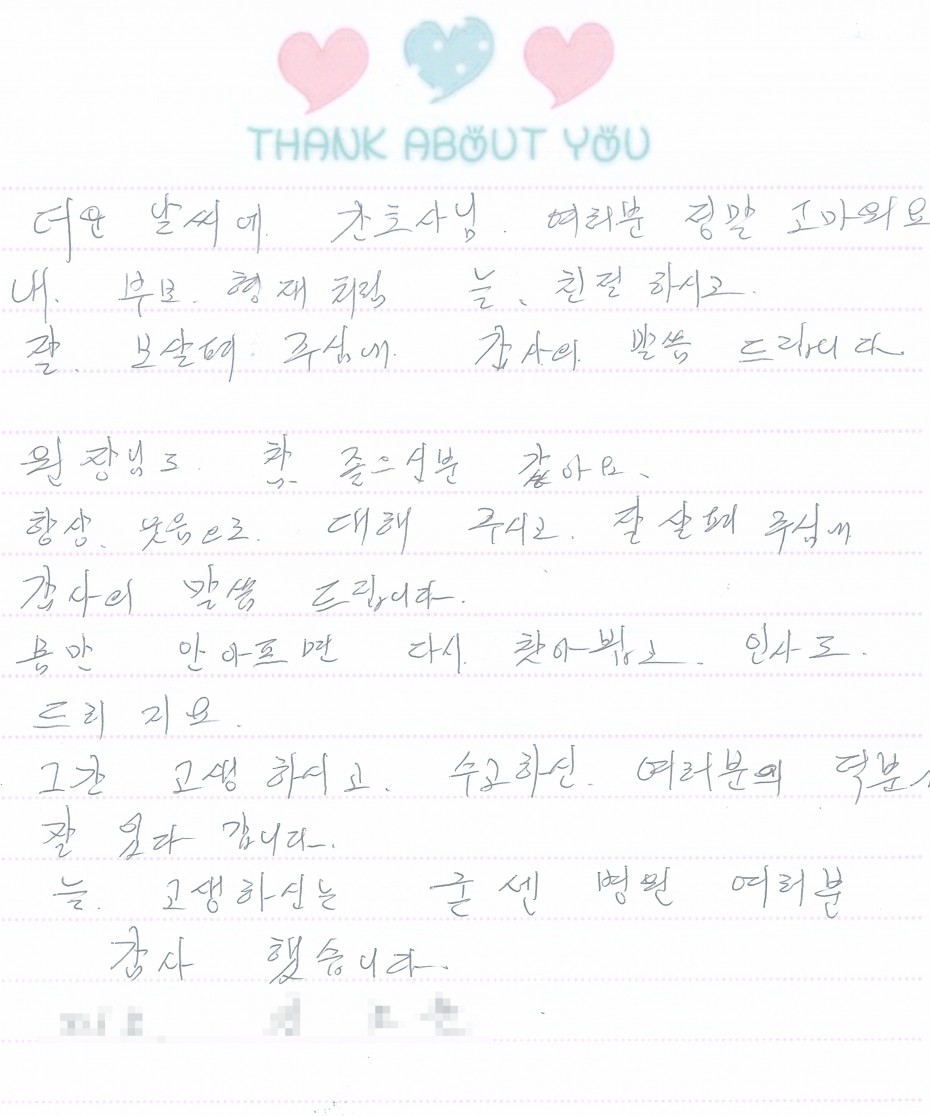 THANK ABOUT YOU
더운 날씨에. 간호사님. 여러분 정말 고마워요
내. 부모. 형재처럼 늘、친절하시고.
잘. 보살펴. 주심에. 감사의. 말씀 드립니다.
원장님도. 참. 좋으신분 같아요、
항상. 웃음으로. 대해 주시고. 잘 살펴 주심에
감사의 말씀 드립니다.
몸만 안아프면 다시. 찾아뵙고. 인사도.
드리지요.
그간 고생하시고. 수고하신. 여러분의 덕분
잘 있다 갑니다.
늘. 고생하신는 굳센 병원 여러분
감사 했습니다.